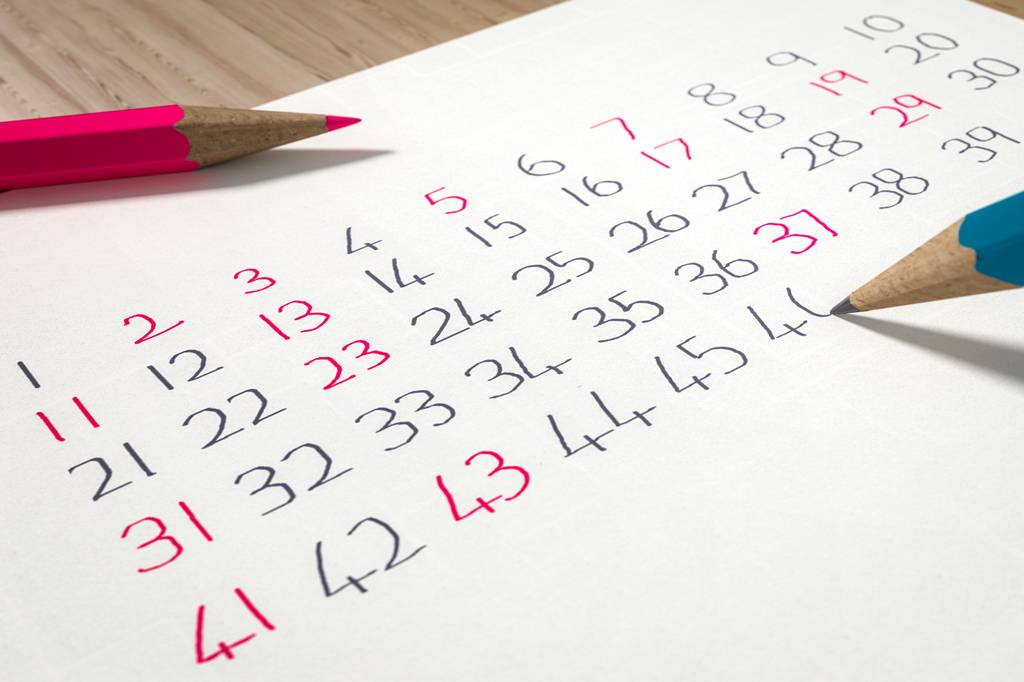 1 2 3 4 5 6 7 8 9 10
11 12 13 14 15 16 17 18 19 20
21 22 23 24 25 26 27 28 29 30
31 32 33 34 35 36 37 38 39
41 42 43 44 45